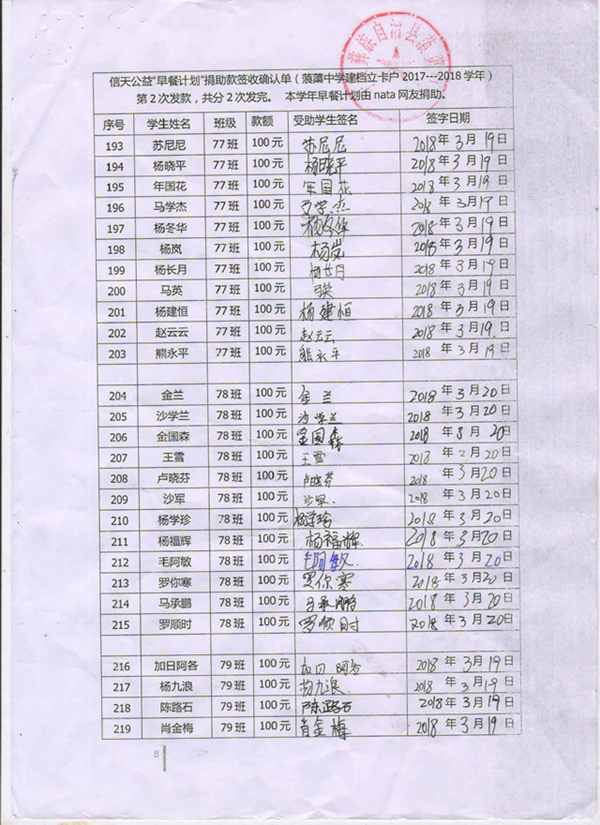 彝族自治县蒗蕖
信天公益"早餐计划"捐助款签收确认单（蒗蕖中学建档立卡户 2017---2018 学年）
第 2 次发款，共分 2 次发完。 本学年早餐计划由 nata 网友捐助。
序号 学生姓名 班级 款额 受助学生签名 签字日期
193 苏尼尼 77 班 100 元 苏尼尼 2018 年 3 月 19 日
194 杨晓平 77 班 100 元 杨晓平 2018 年 3 月 19 日
195 年国花 77 班 100 元 年国花 2018 年 3 月 19 日
196 马学杰 77 班 100 元 马学杰 2018 年 3 月 19 日
197 杨冬华 77 班 100 元 杨冬华 2018 年 3 月 19 日
198 杨岚 77 班 100 元 杨岚 2018 年 3 月 19 日
199 杨长月 77 班 100 元 杨长月 2018 年 3 月 19 日
200 马英 77 班 100 元 马英 2018 年 3 月 19 日
201 杨建恒 77 班 100 元 杨建恒 2018 年 3 月 19 日
202 赵云云 77 班 100 元 赵云云 2018 年 3 月 19 日
203 熊永平 77 班 100 元 熊永平 2018 年 3 月 19 日
204 金兰 78 班 100 元 金兰 2018 年 3 月 20 日
205 沙学兰 78 班 100 元 沙学兰 2018 年 3 月 20 日
206 金国森 78 班 100 元 金国森 2018 年 3 月 20 日
207 王雪 78 班 100 元 王雪 2018 年 3 月 20 日
208 卢晓芬 78 班 100 元 卢晓芬 2018 年 3 月 20 日
209 沙军 78 班 100 元 沙军 2018 年 3 月 20 日
210 杨学珍 78 班 100 元 杨学珍 2018 年 3 月 20 日
211 杨福辉 78 班 100 元 杨福辉 2018 年 3 月 20 日
212 毛阿敏 78 班 100 元 毛阿敏 2018 年 3 月 20 日
213 罗你寒 78 班 100 元 罗你寒 2018 年 3 月 20 日
214 马承鹏 78 班 100 元 马承鹏 2018 年 3 月 20 日
215 罗顺时 78 班 100 元 罗顺时 2018 年 3 月 20 日
216 加日阿各 79 班 100 元 加日阿各 2018 年 3 月 19 日
217 杨九浪 79 班 100 元 杨九浪 2018 年 3 月 19 日
218 陈路石 79 班 100 元 陈路石 2018 年 3 月 19 日
219 肖金梅 79 班 100 元 肖金梅 2018 年 3 月 19 日